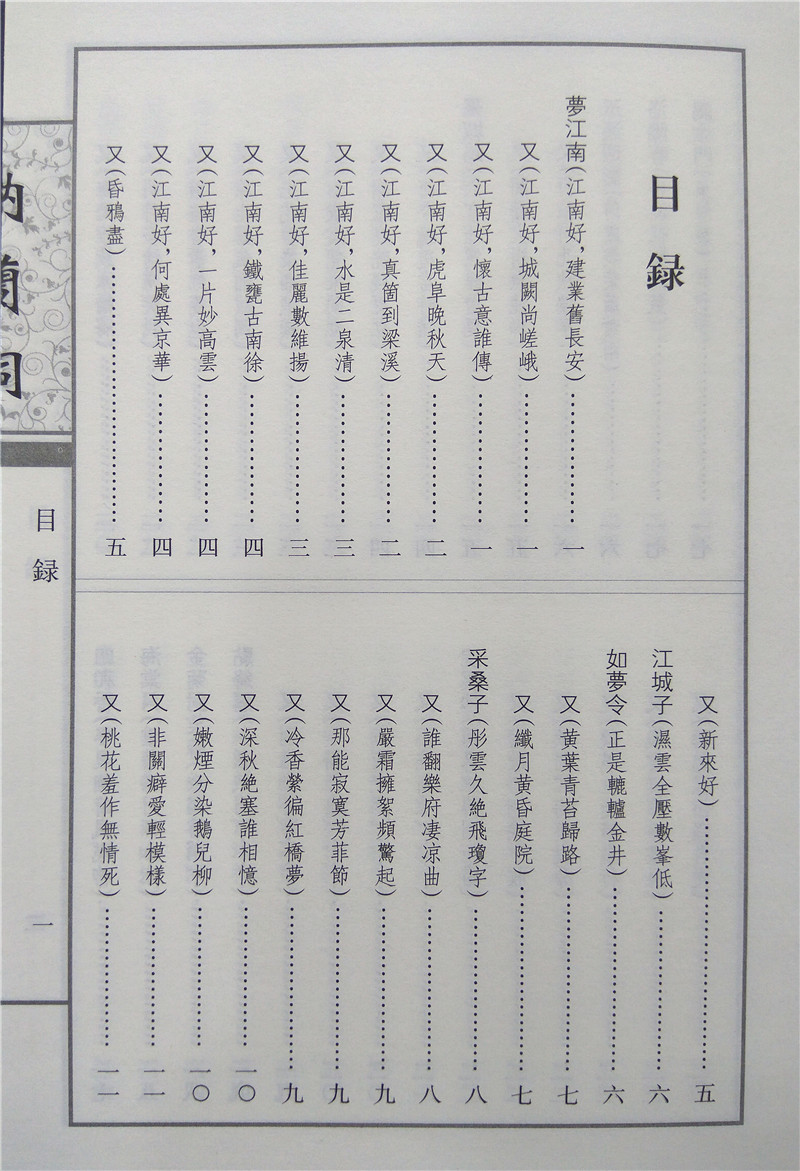 目録
夢江南(江南好,建業舊長安)……………一
又(江南好,城闕尚嵯峨)……………一
又(江南好,懷古意誰傳)……………一
又(江南好,虎阜晚秋天)……………二
又(江南好,真箇到梁溪)……………二
又(江南好,水是二泉清)……………三
又(江南好,佳麗數維揚)……………三
又(江南好,鐵甕古南徐)……………四
又(江南好,一片妙高雲)……………四
又(江南好,何處異京華)……………四
又(昏鴉盡)……………五
又(新來好)……………五
江城子(濕雲全壓數峯低)……………六
如夢令(正是轆轤金井)……………六
又(黄葉青苔歸路)……………七
又(纖月黄昏庭院)……………七
采桑子(彤雲久絶飛瓊字)……………八
又(誰翻樂府凄凉曲)……………八
又(嚴霜擁絮頻驚起)……………九
又(那能寂寞芳菲節)……………九
又(冷香縈徧紅橋夢)……………九
又(深秋絶塞誰相憶)……………一〇
又(嫩煙分染鵝兒柳)……………一〇
又(非關癖愛輕模樣)……………一一
又(桃花羞作無情死)……………一一
納蘭詞
目録
一